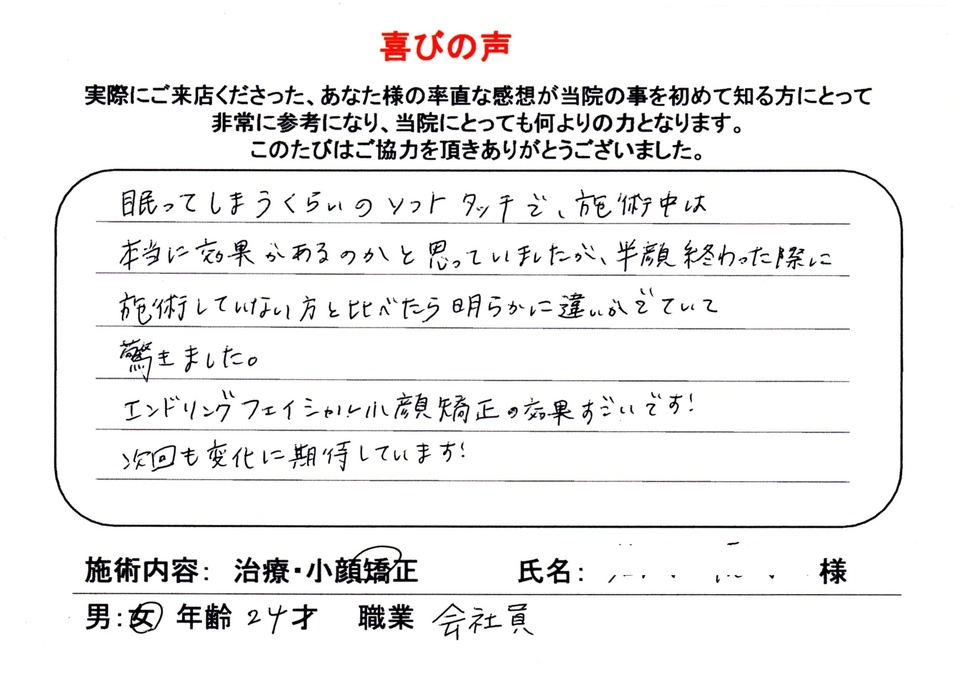 喜びの声
実際にご来店くださった、あなた様の率直な感想が当院の事を初めて知る方にとって
非常に参考になり、当院にとっても何よりの力となります。
このたびはご協力を頂きありがとうございました。
眠ってしまうくらいのソフトタッチで、施術中は
本当に効果があるのかと思っていましたが、半顔終わった際に
施術していない方と比べたら明らかに違いがでていて
驚きました。
エンドリングフェイシャル小顔矯正の効果すごいです!
次回も変化に期待しています!
施術内容： 治療・小顔矯正 氏名： 様
男：女 年齢 24才 職業 会社員